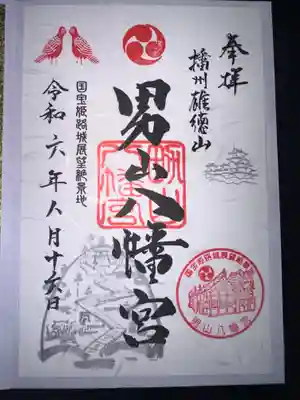 奉拝
播州雄徳山
男山八幡宮
国宝姫路城展望絶景地
令和六年八月十六日
男山八幡宮